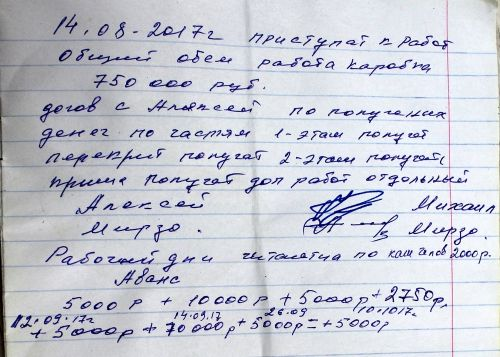 14.08-2017г приступат к работ
Общий обем работа каробка
750 000 руб.
догов с Алексей по получених
денег по частям 1-этам получат
перекрит получат 2-этам получат
криша получат доп работ отдельный
Алексей Михаил
Мирзо. Мирзо.
Рабочий дни читаетиа по каж челов 2000р.
Аванс
5000р + 10000р + 5000р + 2750р,
12.09.17г 14.09.17 26.09 10.10.17г
+ 5000р + 70000р + 5000р = + 5000р